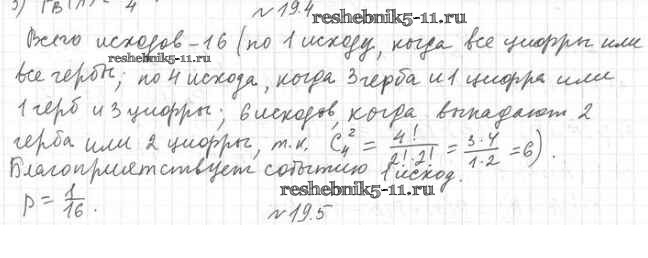 3) P(A) = 4
№19.4
reshebnik5-11.ru
Всего исходов - 16 (по 1 исходу, когда все цифры или
reshebnik5-11.ru
все гербы; по 4 исхода, когда 3 герба и 1 цифра или
1 герб и 3 цифры; 6 исходов, когда выпадают 2
герба или 2 цифры, т.к. C₄² = 4!/(2!·2!) = 3·4/(1·2) = 6).
Благоприятствует событию 1 исход.
reshebnik5-11.ru
p = 1/16.
№19.5